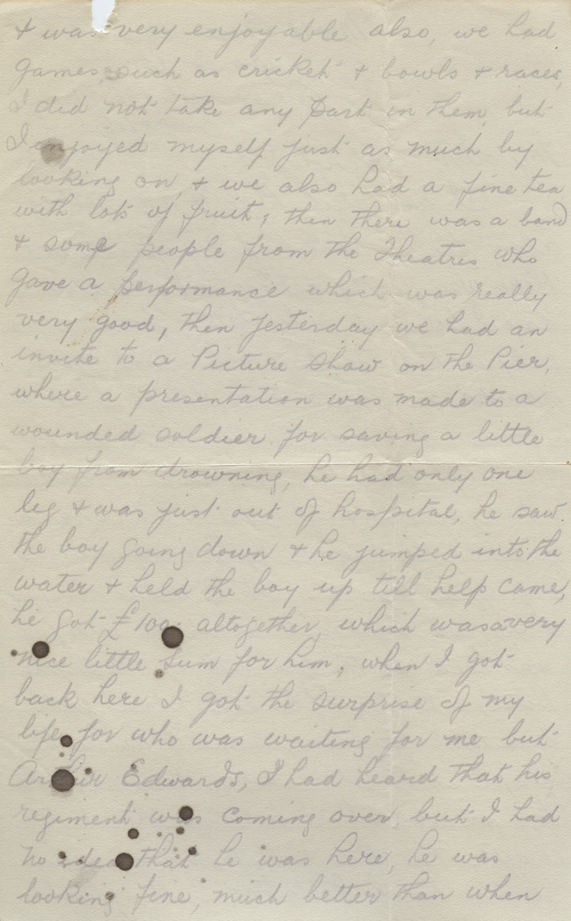 & was very enjoyable also, we had
games, such as cricket & bowls & races,
I did not take any part in them but
I enjoyed myself just as much by
looking on, & we also had a fine tea
with lots of fruit, then there was a band
& some people from the Theatres who
gave a performance which was really
very good, then yesterday we had an
invite to a Picture Show on the Pier,
where a presentation was made to a
wounded soldier for saving a little
boy from drowning, he had only one
leg & was just out of hospital, he saw
the boy going down & he jumped into the
water & held the boy up till help came,
he got £100 altogether, which was a very
nice little sum for him, when I got
back here I got the surprise of my
life for who was waiting for me but
Arthur Edwards, I had heard that his
regiment was coming over, but I had
no idea that he was here, he was
looking fine, much better than when